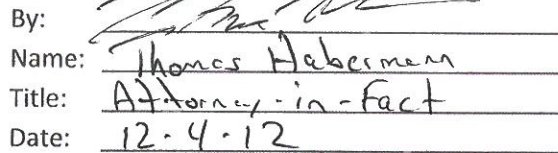 By:
Name: Thomas Habermann
Title: Attorney-in-Fact
Date: 12.4.12